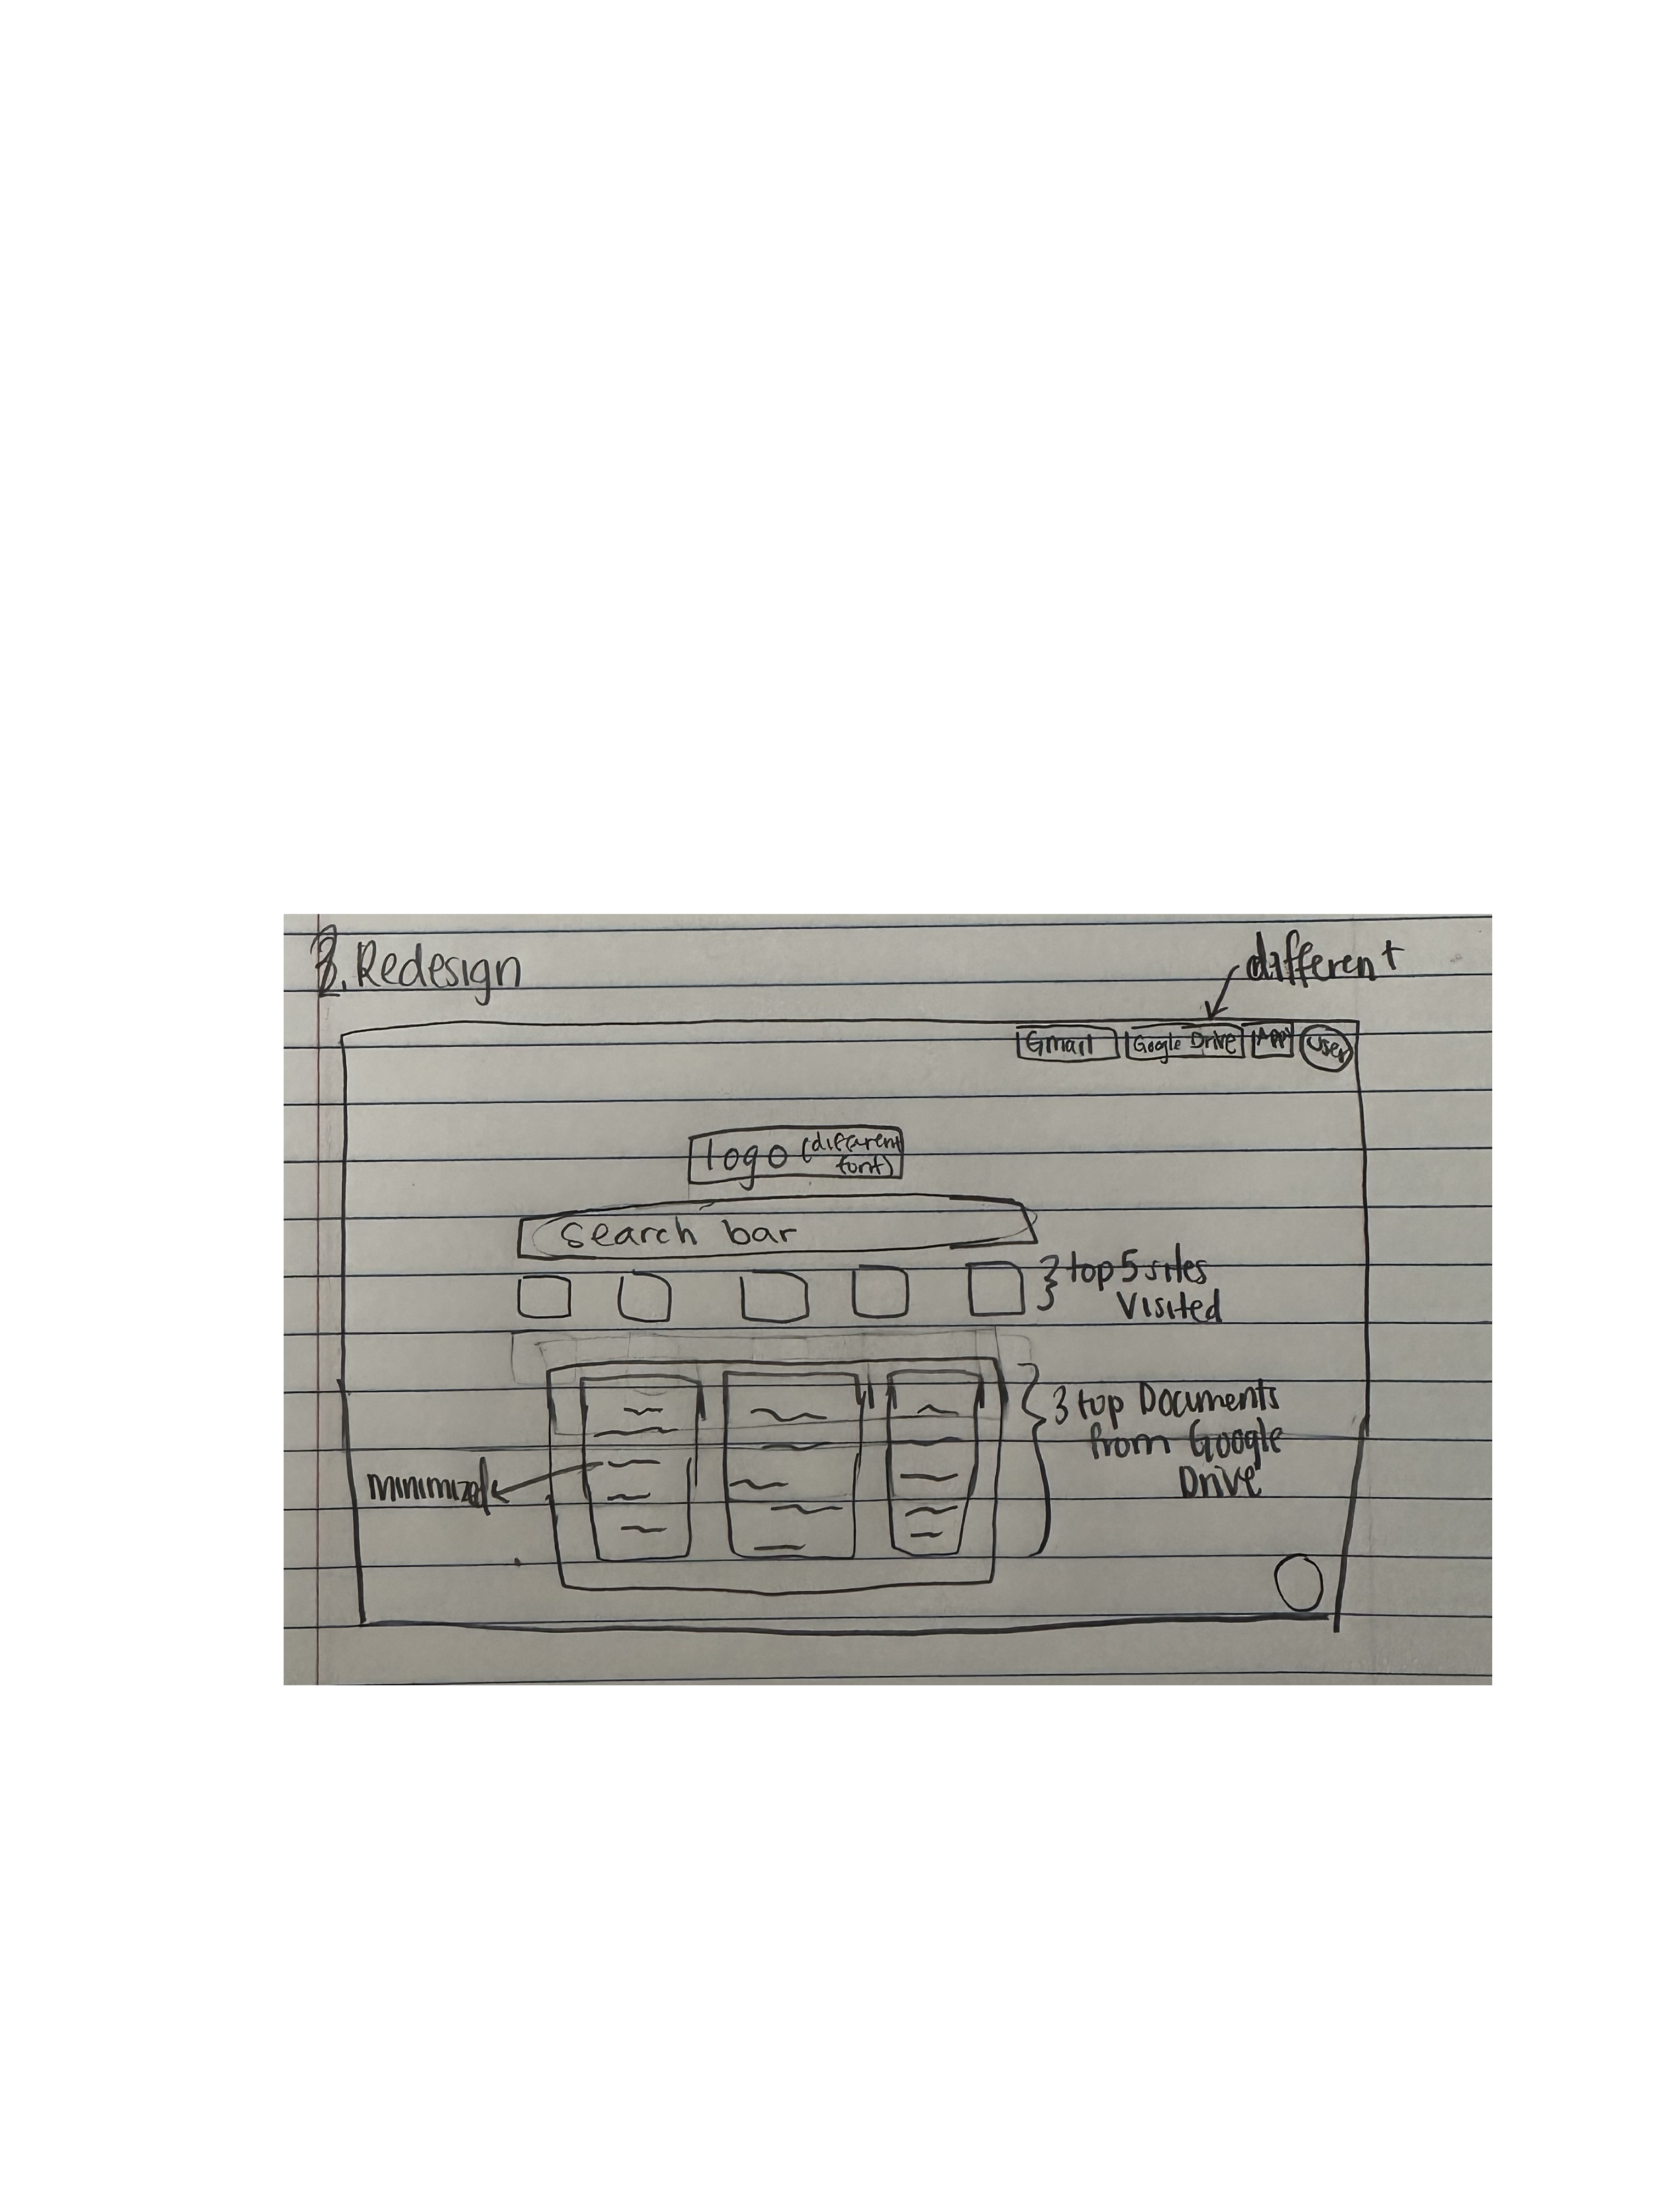 Redesign
different
Gmail Google Drive App User
logo (different
font)
search bar
top 5 sites
Visited
3 top Documents
from Google
Drive
minimized